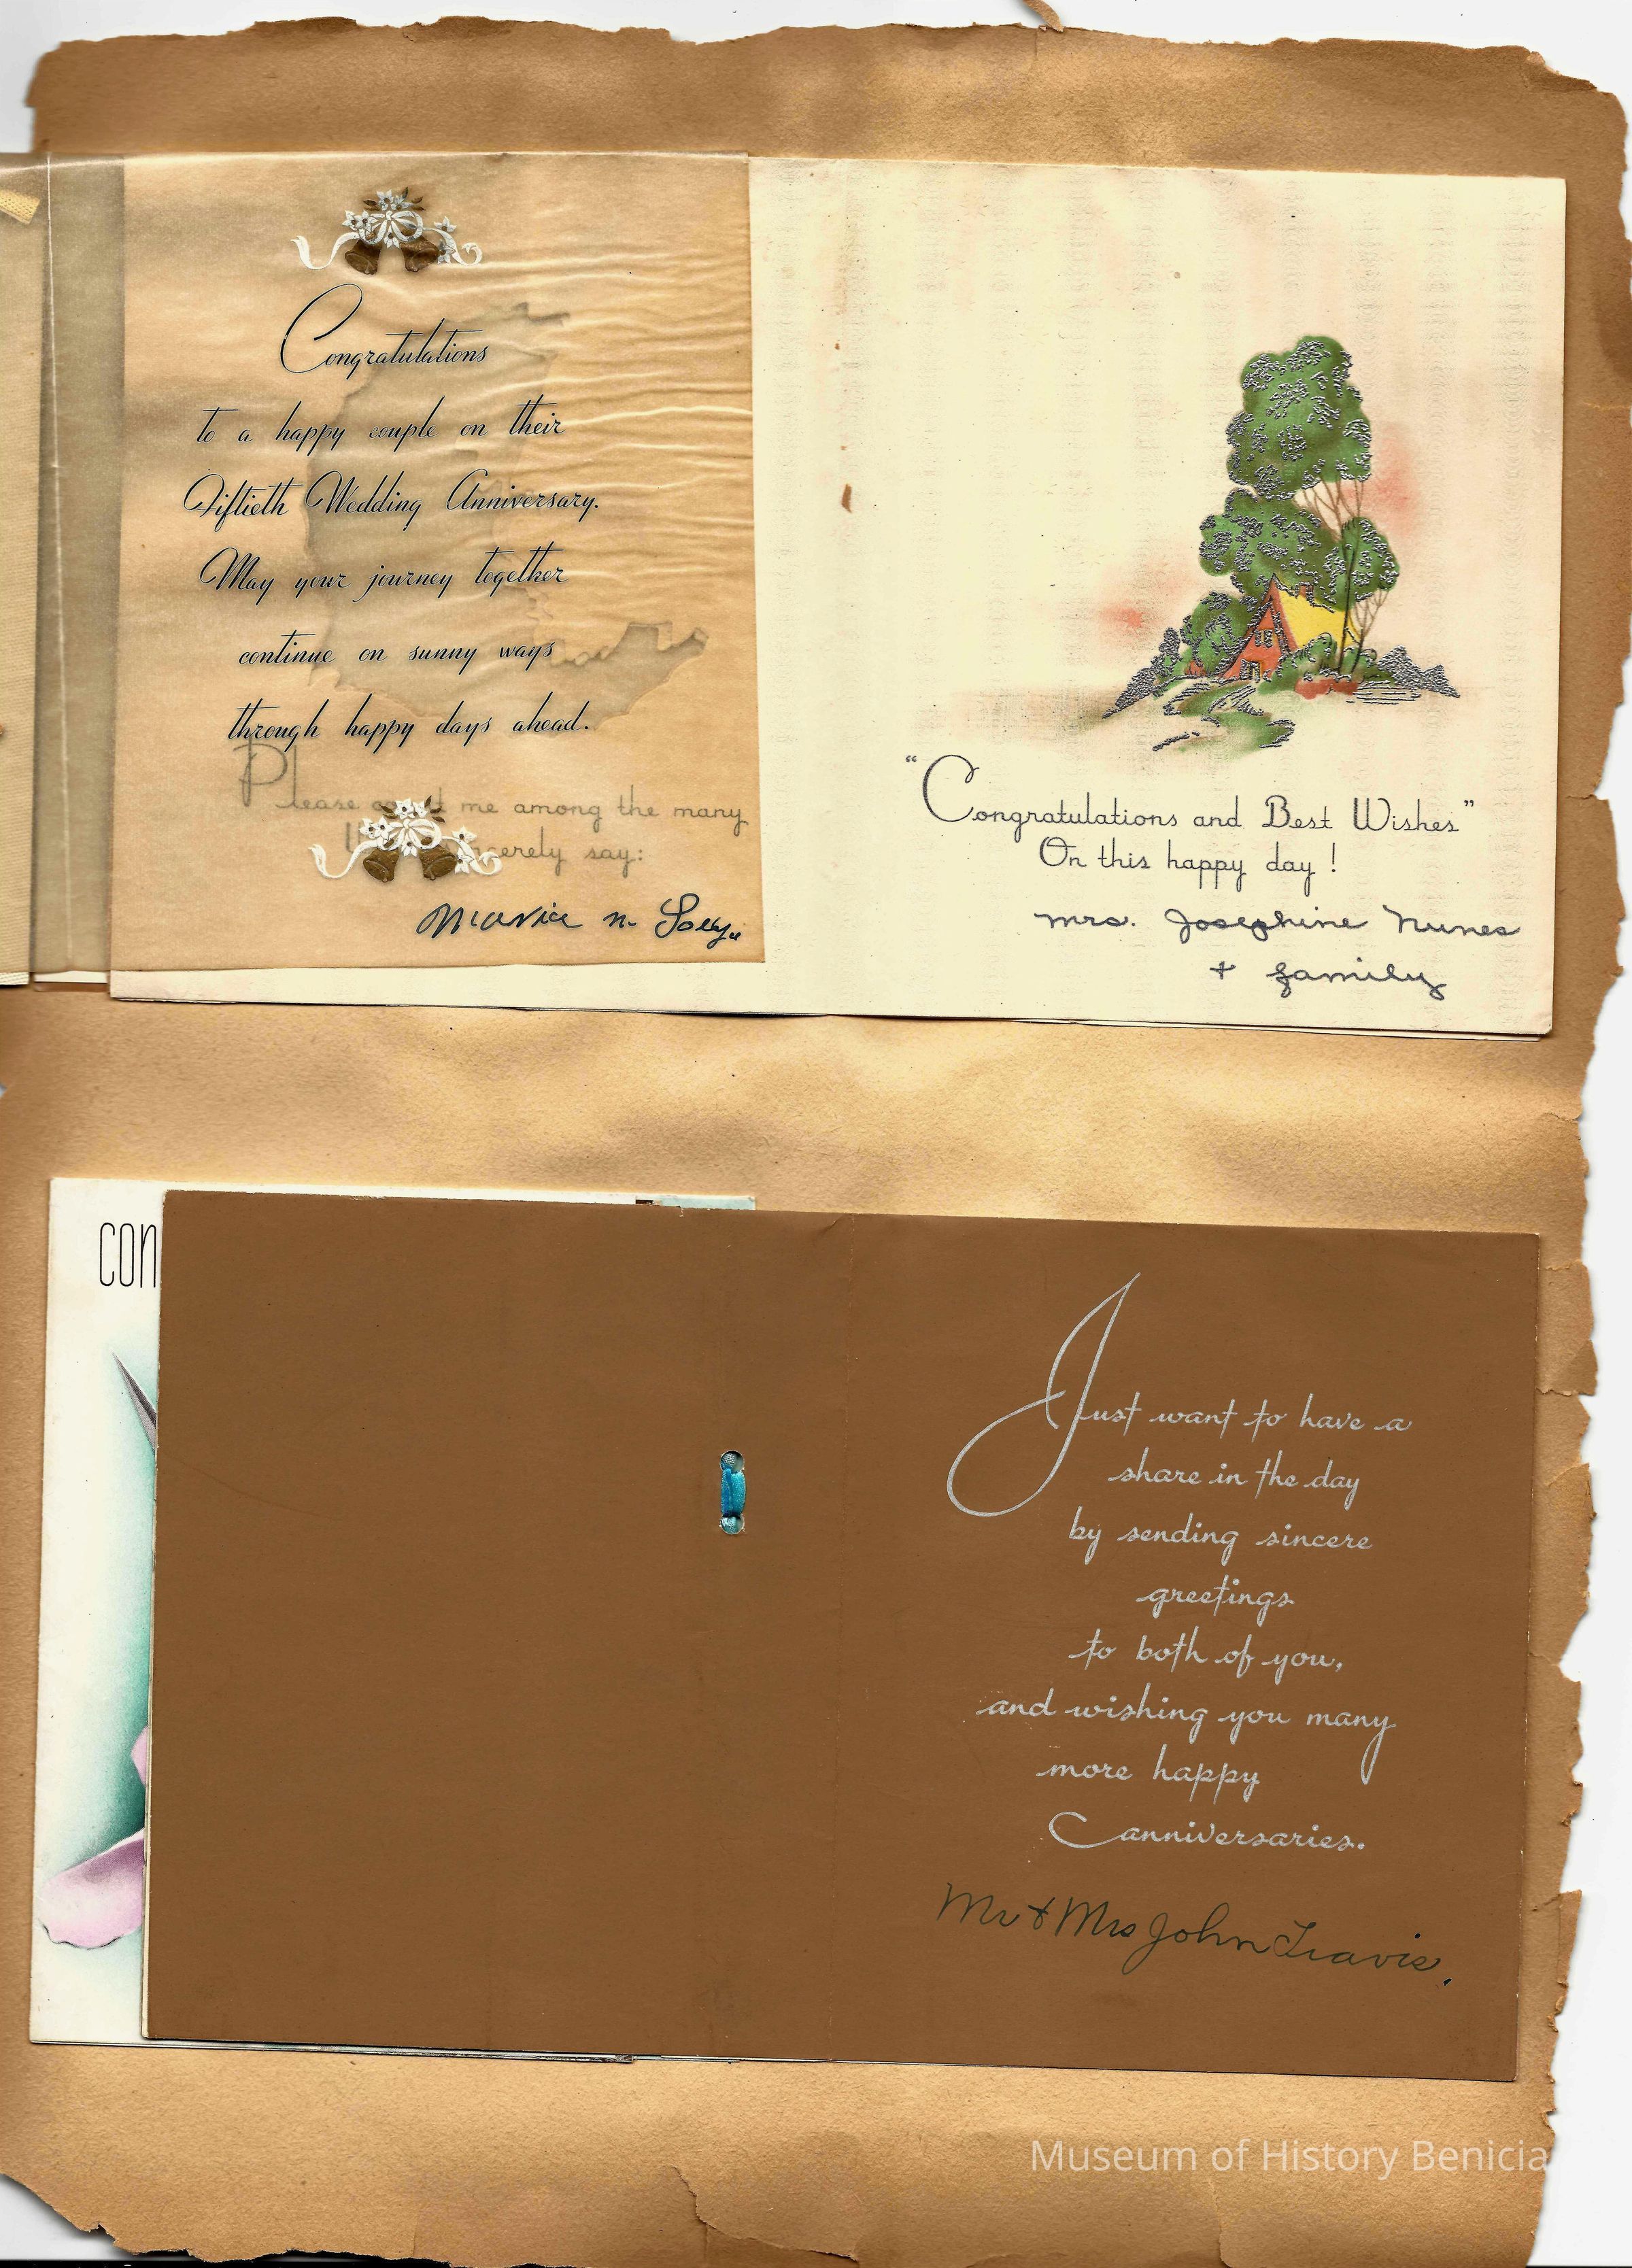 Congratulations
to a happy couple on their
Fiftieth Wedding Anniversary.
May your journey together
continue on sunny ways
through happy days ahead.
Please me among the many
say:
"Congratulations and Best Wishes"
On this happy day!
Mrs. Josephine Nunes
+ family
CON
Just want to have a
share in the day
by sending sincere
greetings
to both of you,
and wishing you many
more happy
anniversaries.
Mr + Mrs John Travis.
Museum of History Benicia